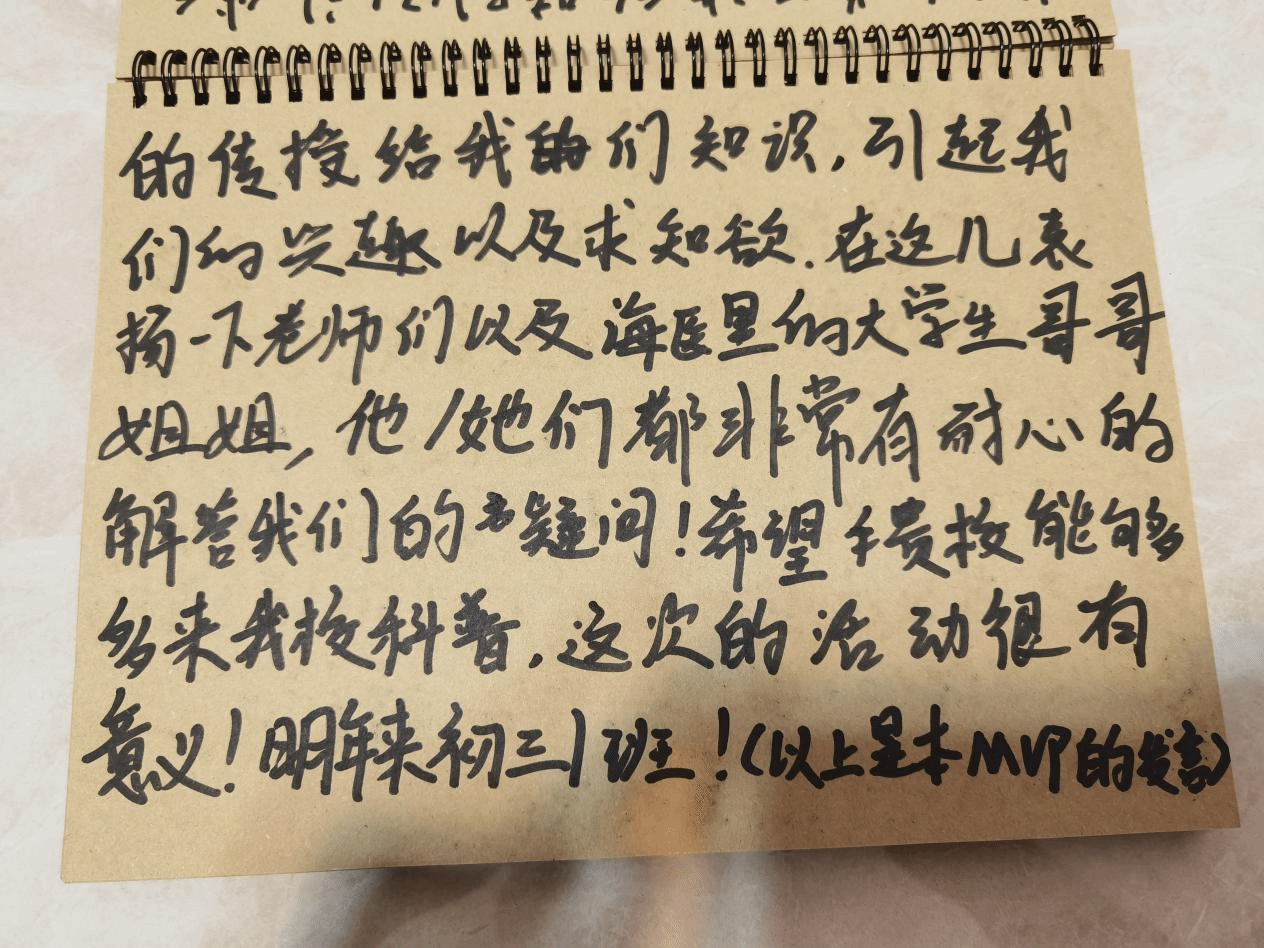 的传授给我们知识,引起我
们的兴趣以及求知欲.在这几表
扬一下老师们以及海医里的大学生哥哥
姐姐,他/她们都非常有耐心的
解答我们的疑问!希望贵校能够
多来我校科普.这次的活动很有
意义!明年来初三1班!(以上是本MVP的发言)